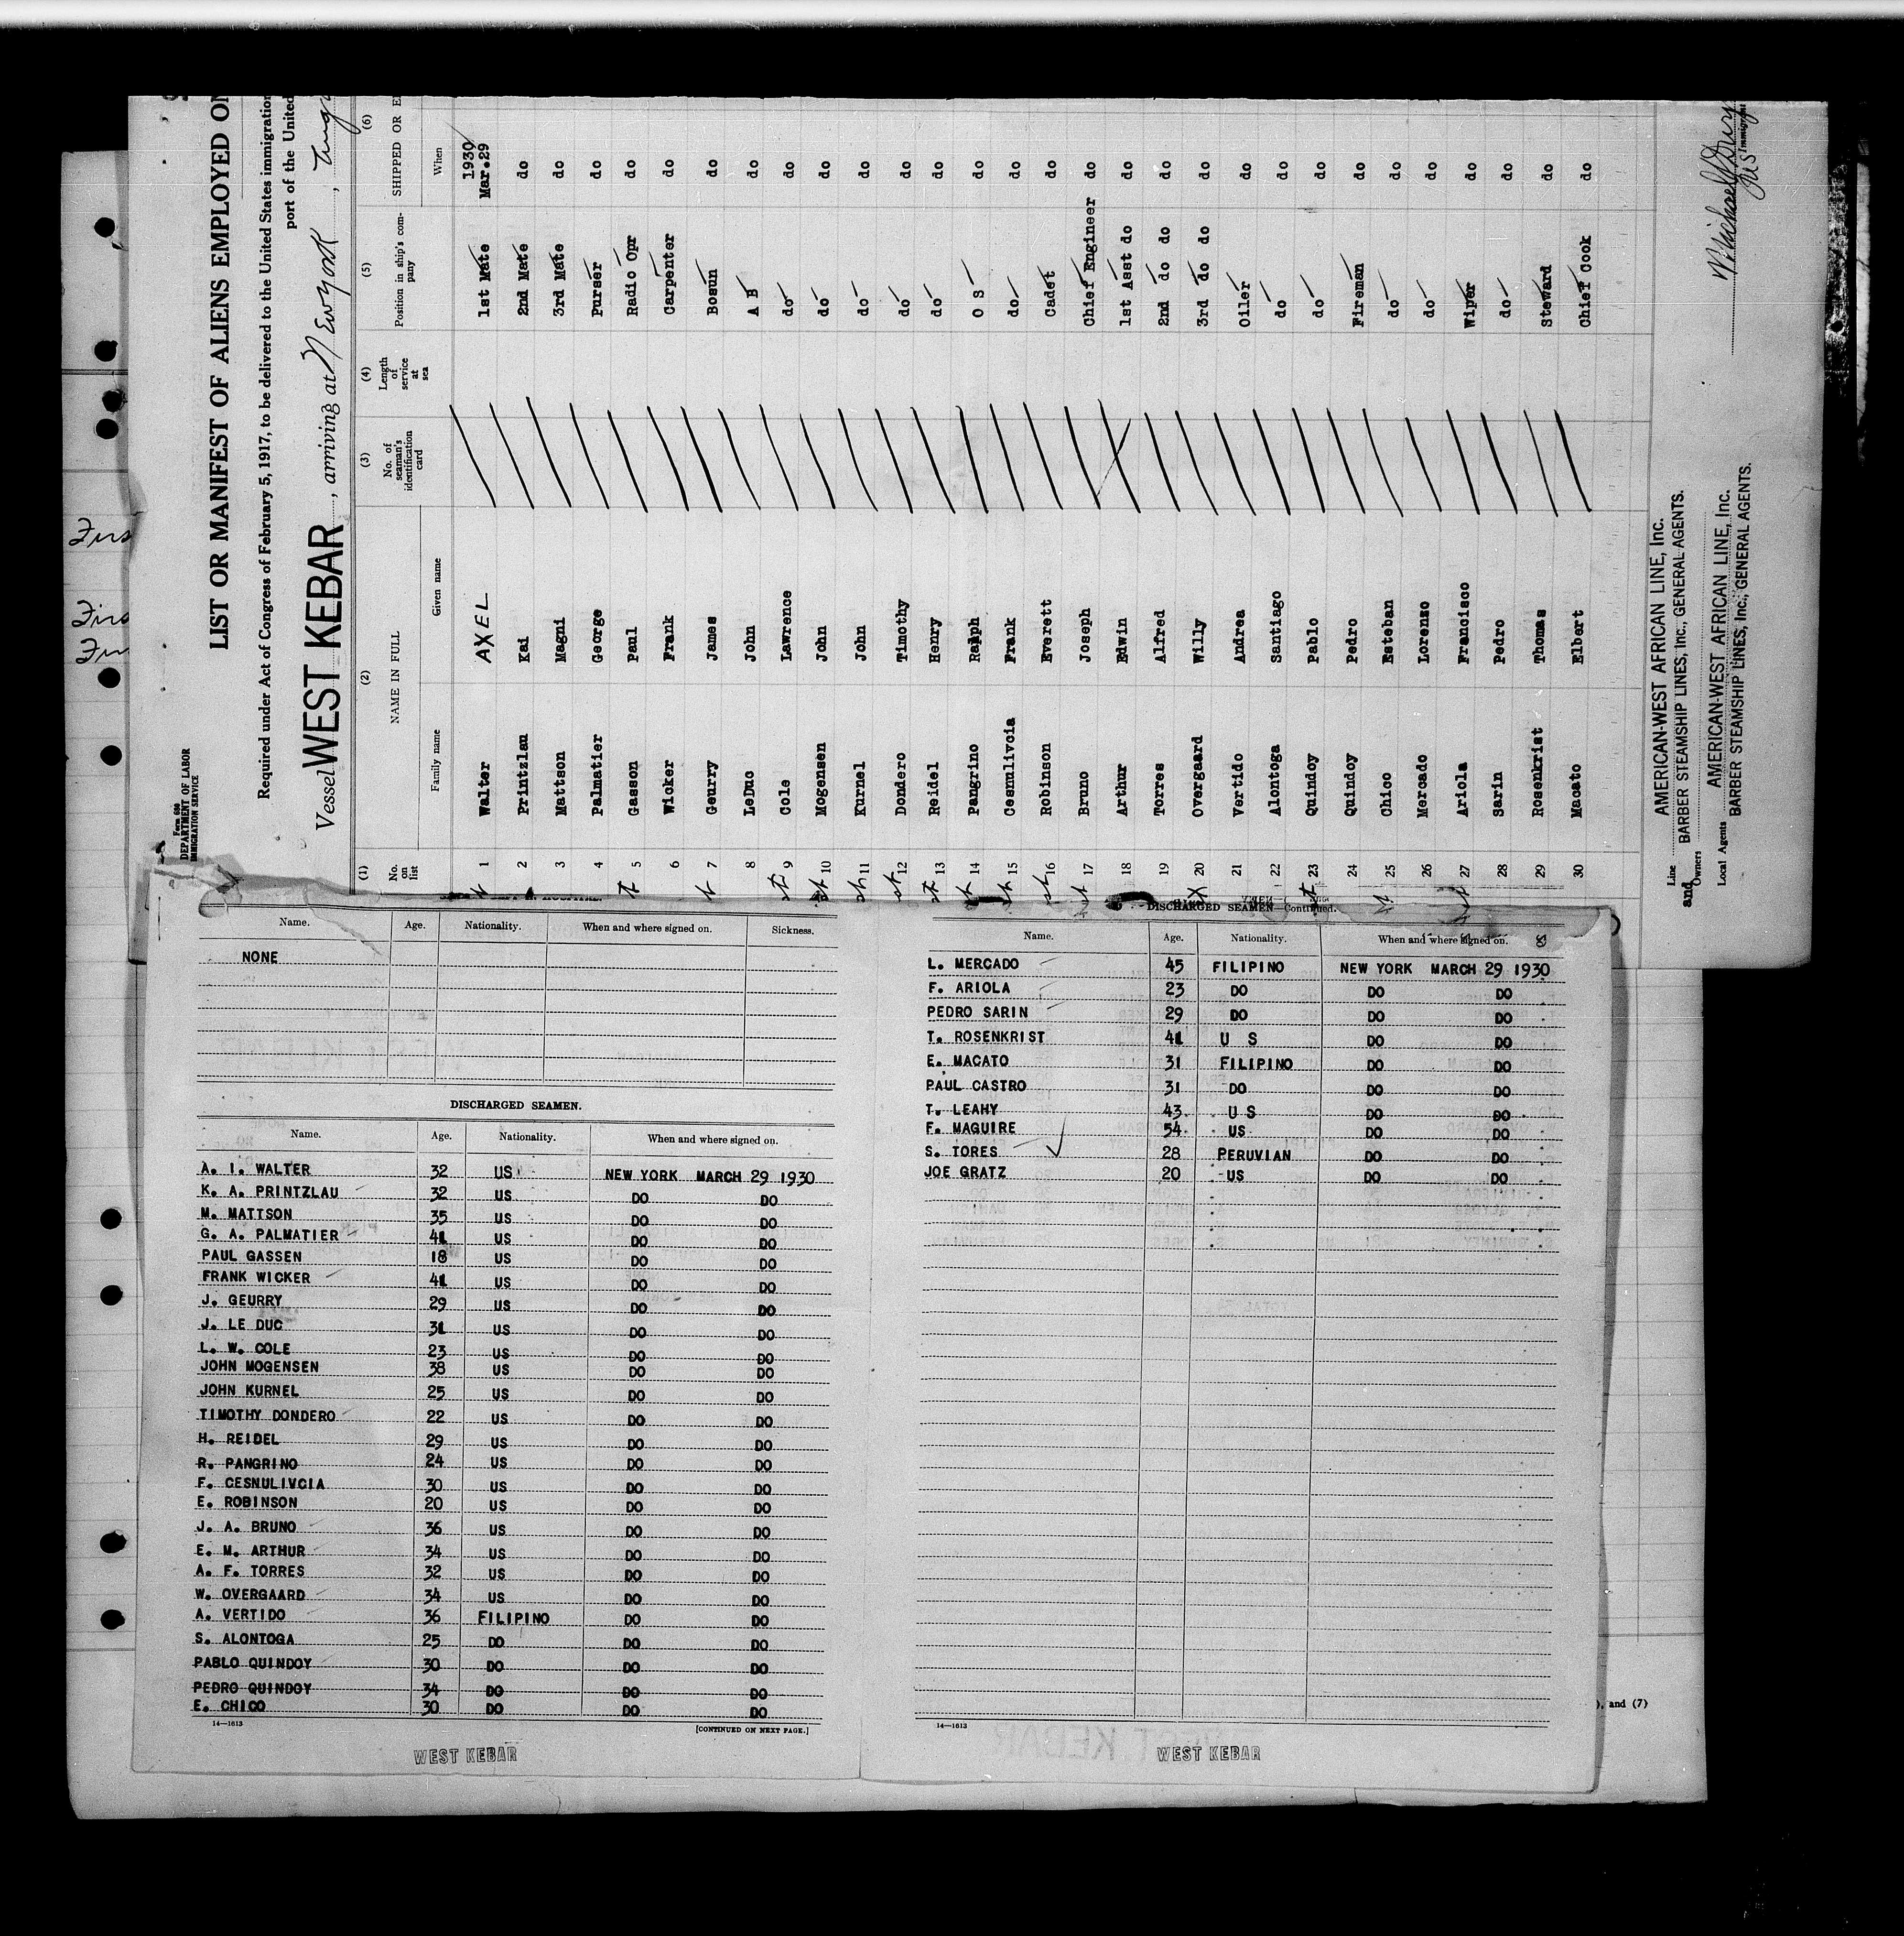 Form 680
DEPARTMENT OF LABOR
IMMIGRATION SERVICE
LIST OR MANIFEST OF ALIENS EMPLOYED ON
Required under Act of Congress of February 5, 1917, to be delivered to the United States immigration
port of the United
Vessel WEST KEBAR, arriving at New York,
(1) (2) (3) (4) (5) (6)
No. on list NAME IN FULL No. of seaman's identification card Length of service at sea Position in ship's company SHIPPED OR
Family name Given name When
1 Walter AXEL 1st Mate 1930 Mar.29
2 Printzlau Kai 2nd Mate do
3 Mattson Magni 3rd Mate do
4 Palmatier George Purser do
5 Gasson Paul Radio Opr do
6 Wicker Frank Carpenter do
7 Geurry James Bosun do
8 LeDuc John A B do
9 Cole Lawrence do do
10 Mogensen John do do
11 Kurnel John do do
12 Dondero Timothy do do
13 Reidel Henry do do
14 Pangrino Ralph O S do
15 Cesnulivcia Frank do do
16 Robinson Everett Cadet do
17 Bruno Joseph Chief Engineer do
18 Arthur Edwin 1st Asst do do
19 Torres Alfred 2nd do do do
20 Overgaard Willy 3rd do do do
21 Vertido Andrea Oiler do
22 Alontoga Santiago do do
23 Quindoy Pablo do do
24 Quindoy Pedro Fireman do
25 Chico Esteban do do
26 Mercado Lorenzo do do
27 Ariola Francisco Wiper do
28 Sarin Pedro do do
29 Rosenkrist Thomas Steward do
30 Macato Elbert Chief Cook do
Line AMERICAN-WEST AFRICAN LINE, Inc.
and Owners BARBER STEAMSHIP LINES, Inc., GENERAL AGENTS.
Local Agents AMERICAN-WEST AFRICAN LINE, Inc.
BARBER STEAMSHIP LINES, Inc., GENERAL AGENTS.
Immigrant
Name. Age. Nationality. When and where signed on. Sickness.
NONE
DISCHARGED SEAMEN.
Name. Age. Nationality. When and where signed on.
A. I. WALTER 32 US NEW YORK MARCH 29 1930
K. A. PRINTZLAU 32 US DO DO
M. MATTSON 35 US DO DO
G. A. PALMATIER 41 US DO DO
PAUL GASSEN 18 US DO DO
FRANK WICKER 41 US DO DO
J. GEURRY 29 US DO DO
J. LE DUC 31 US DO DO
L. W. COLE 23 US DO DO
JOHN MOGENSEN 38 US DO DO
JOHN KURNEL 25 US DO DO
TIMOTHY DONDERO 22 US DO DO
H. REIDEL 29 US DO DO
R. PANGRINO 24 US DO DO
F. CESNULIVCIA 30 US DO DO
E. ROBINSON 20 US DO DO
J. A. BRUNO 36 US DO DO
E. M. ARTHUR 34 US DO DO
A. F. TORRES 32 US DO DO
W. OVERGAARD 34 US DO DO
A. VERTIDO 36 FILIPINO DO DO
S. ALONTOGA 25 DO DO DO
PABLO QUINDOY 30 DO DO DO
PEDRO QUINDOY 34 DO DO DO
E. CHICO 30 DO DO DO
14—1613 [CONTINUED ON NEXT PAGE.]
WEST KEBAR
DISCHARGED SEAMEN—Continued.
Name. Age. Nationality. When and where signed on.
L. MERCADO 45 FILIPINO NEW YORK MARCH 29 1930
F. ARIOLA 23 DO DO DO
PEDRO SARIN 29 DO DO DO
T. ROSENKRIST 41 U S DO DO
E. MACATO 31 FILIPINO DO DO
PAUL CASTRO 31 DO DO DO
T. LEAHY 43 U S DO DO
F. MAGUIRE 54 US DO DO
S. TORES 28 PERUVIAN DO DO
JOE GRATZ 20 US DO DO
14—1613
WEST KEBAR
), and (7)